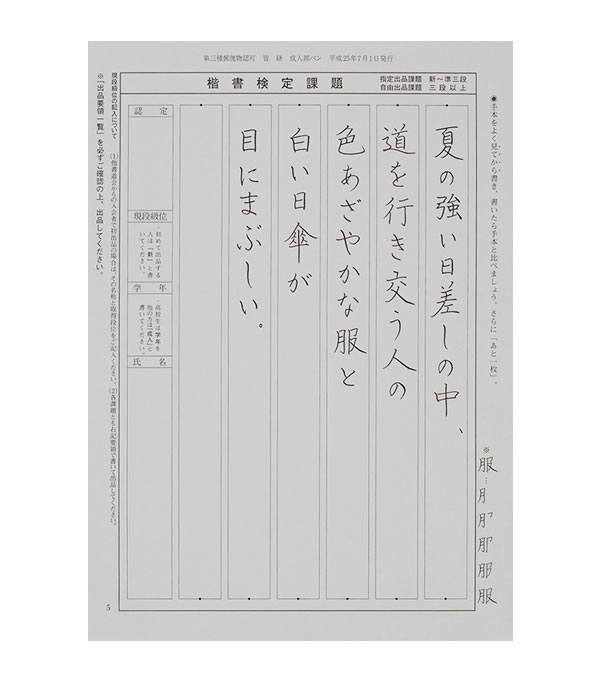 第三種郵便物認可 習 研 成人部ペン 平成25年7月1日発行
楷書検定課題
指定出品課題 新〜準三段
自由出品課題 三段以上
●手本をよく見てから書き、書いたら手本と比べましょう。さらに「あと一枚」。
夏の強い日差しの中、
道を行き交う人の
色あざやかな服と
白い日傘が
目にまぶしい。
※服…
服
認定
現段級位
・初めて出品する
人は「新」と書
いてください。
学年
・高校生は学年を
他の方は「成人」と
書いてください。
氏名
現段級位の記入について
(1)他書道会からの入会者で初出品の場合は、その名称と取得段位をご記入ください。(2)各課題とも右記要領で書いて出品してください。
※「出品要領一覧」を必ずご確認の上、出品してください。
5